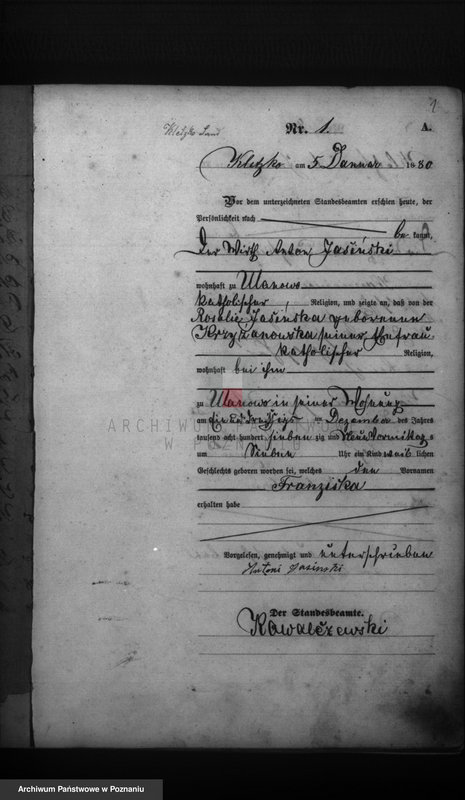 1
Kletzko Land
Nr. 1. A.
Kletzko am 5 Januar 1880
Vor dem unterzeichneten Standesbeamten erschien heute, der
Persönlichkeit nach
be kannt,
Der Wirth Anton Jasiński
wohnhaft zu Ulanowo
katholischer Religion, und zeigte an, daß von der
Rosalie Jasińska geborenen
Krzyżanowska seiner Ehefrau
katholischer Religion,
wohnhaft bei ihm
zu Ulanowo in seiner Wohnung
am ein und dreißigs ten Dezember des Jahres
tausend acht hundert sieben zig und Neun Vormittags
um Sieben Uhr ein Kind weib lichen
Geschlechts geboren worden sei, welches den Vornamen
Franziska
erhalten habe
Vorgelesen, genehmigt und unterschrieben
Antoni Jasinski
Der Standesbeamte.
Kowalczewski
ARCHIWUM PAŃSTWOWE
W POZNANIU
Archiwum Państwowe w Poznaniu